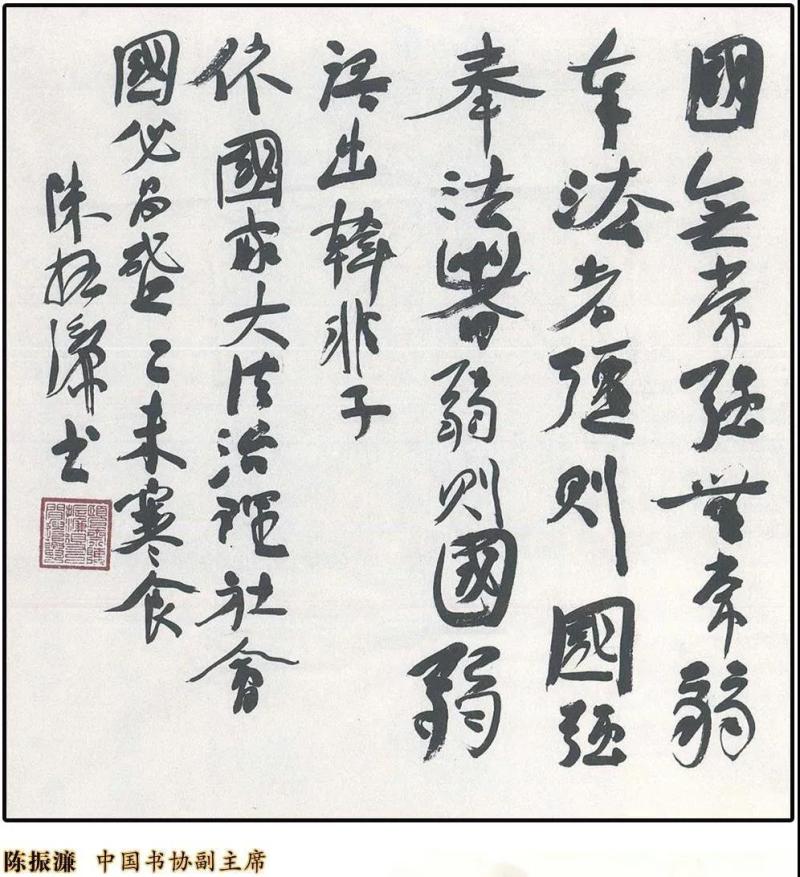 國無常強無常弱
奉法者彊則國強
奉法者弱則國弱
語出韓非子
依國家大法治理社會
國必昌盛乙未寒食
陳振濂書
陈振濂 中国书协副主席